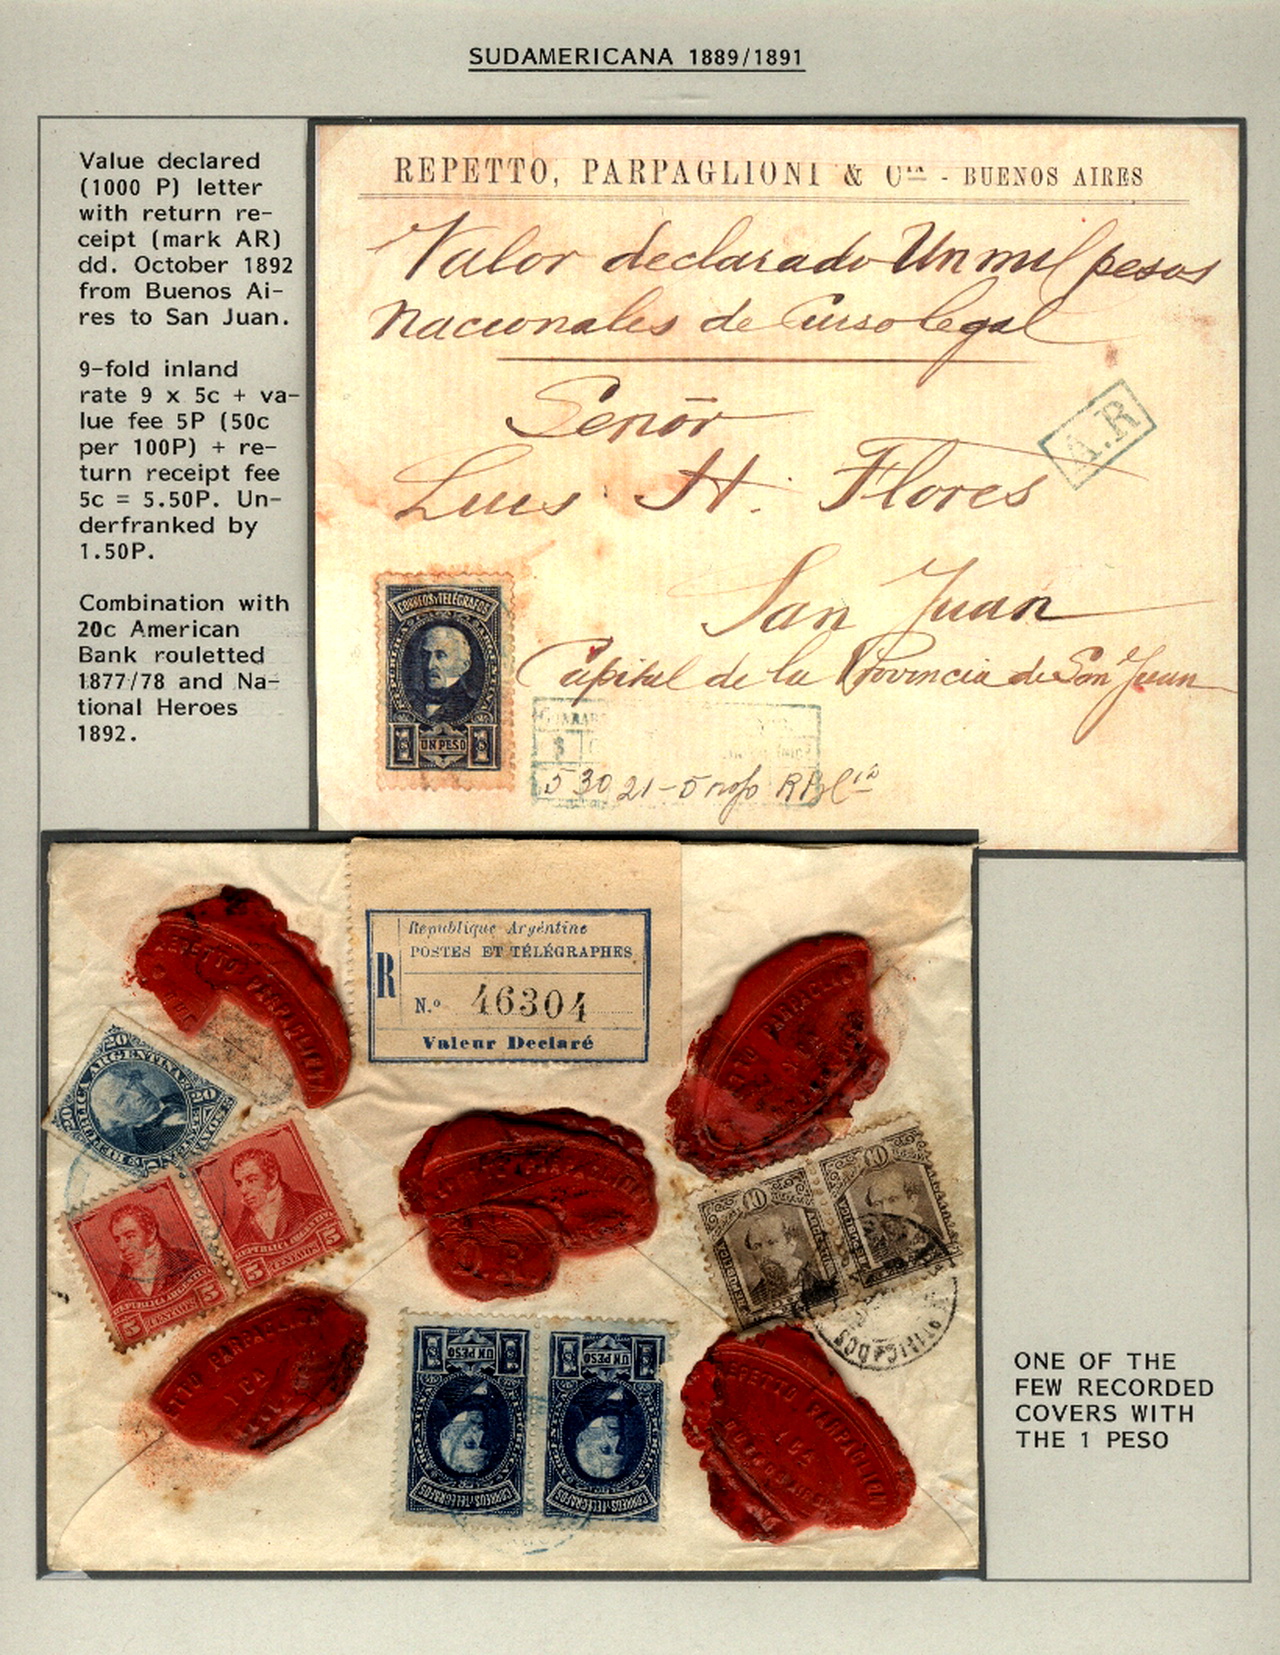 SUDAMERICANA 1889/1891
Value declared
(1000 P) letter
with return re-
ceipt (mark AR)
dd. October 1892
from Buenos Ai-
res to San Juan.
9-fold inland
rate 9 x 5c + va-
lue fee 5P (50c
per 100P) + re-
turn receipt fee
5c = 5.50P. Un-
derfranked by
1.50P.
Combination with
20c American
Bank rouletted
1877/78 and Na-
tional Heroes
1892.
REPETTO, PARPAGLIONI & Cia - BUENOS AIRES
Valor declarado Un mil pesos
Nacionales de Curso legal
Señor
A.R
Luis H. Flores
San Juan
Capital de la Provincia de San Juan
CORREOS Y TELÉGRAFOS
REPUBLICA ARGENTINA
1 UN PESO 1
5 30 21-5
République Argentine
POSTES ET TÉLÉGRAPHES
R
N.º 46304
Valeur Declaré
REPETTO PARPAGLIONI
PARPAGLIONI
20 20
REPUBLICA ARGENTINA
REPUBLICA ARGENTINA
5 CENTAVOS 5
REPUBLICA ARGENTINA
5 CENTAVOS 5
40
40
PARPAGLIONI
UN PESO
CORREOS Y TELÉGRAFOS
UN PESO
CORREOS Y TELÉGRAFOS
REPETTO PARPAGLIONI
ONE OF THE
FEW RECORDED
COVERS WITH
THE 1 PESO